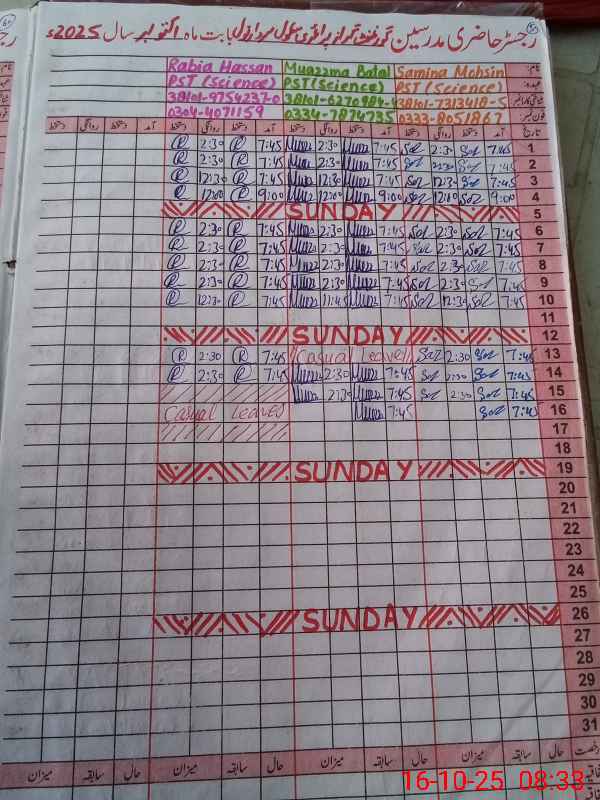 رجسٹر حاضری مدرسین گورنمنٹ گرلز پرائمری سکول بابت ماہ اکتوبر سال 2025ء
Rabia Hassan Muazzma Batal Samina Mohsin نام:
PST (Science) PST (Science) PST (Science) عہدہ:
فون نمبر: 0304-4071159 0334-7874735 0333-8051867
تاریخ آمد دستخط روانگی دستخط آمد دستخط روانگی دستخط آمد دستخط روانگی دستخط آمد دستخط روانگی دستخط
R 2:30 R 7:45 Muaz 2:30 Muaz 7:45 Sal 2:30 Sal 7:45 1
R 2:30 R 7:45 Muaz 2:30 Muaz 7:45 Sal 2:30 Sal 7:45 2
R 12:30 R 7:45 Muaz 12:30 Muaz 7:45 Sal 12:30 Sal 7:45 3
R 12:00 R 9:00 Muaz 12:00 Muaz 9:00 Sal 12:00 Sal 9:00 4
SUNDAY 5
R 2:30 R 7:45 Muaz 2:30 Muaz 7:45 Sal 2:30 Sal 7:45 6
R 2:30 R 7:45 Muaz 2:30 Muaz 7:45 Sal 2:30 Sal 7:45 7
R 2:30 R 7:45 Muaz 2:30 Muaz 7:45 Sal 2:30 Sal 7:45 8
R 2:30 R 7:45 Muaz 2:30 Muaz 7:45 Sal 2:30 Sal 7:45 9
R 12:30 R 7:45 Muaz 11:45 Muaz 7:45 Sal 12:30 Sal 7:45 10
11
SUNDAY 12
R 2:30 R 7:45 Casual Leave1 Sal 2:30 Sal 7:45 13
R 2:30 R 7:45 Muaz 2:30 Muaz 7:45 Sal 2:30 Sal 7:45 14
Muaz 2:30 Muaz 7:45 Sal 2:30 Sal 7:45 15
Casual Leaves Muaz 7:45 Sal 7:45 16
17
18
SUNDAY 19
20
21
22
23
24
25
SUNDAY 26
27
28
29
30
31
رخصت حال سابقہ میزان حال سابقہ میزان حال سابقہ میزان حال سابقہ میزان
16-10-25 08:33